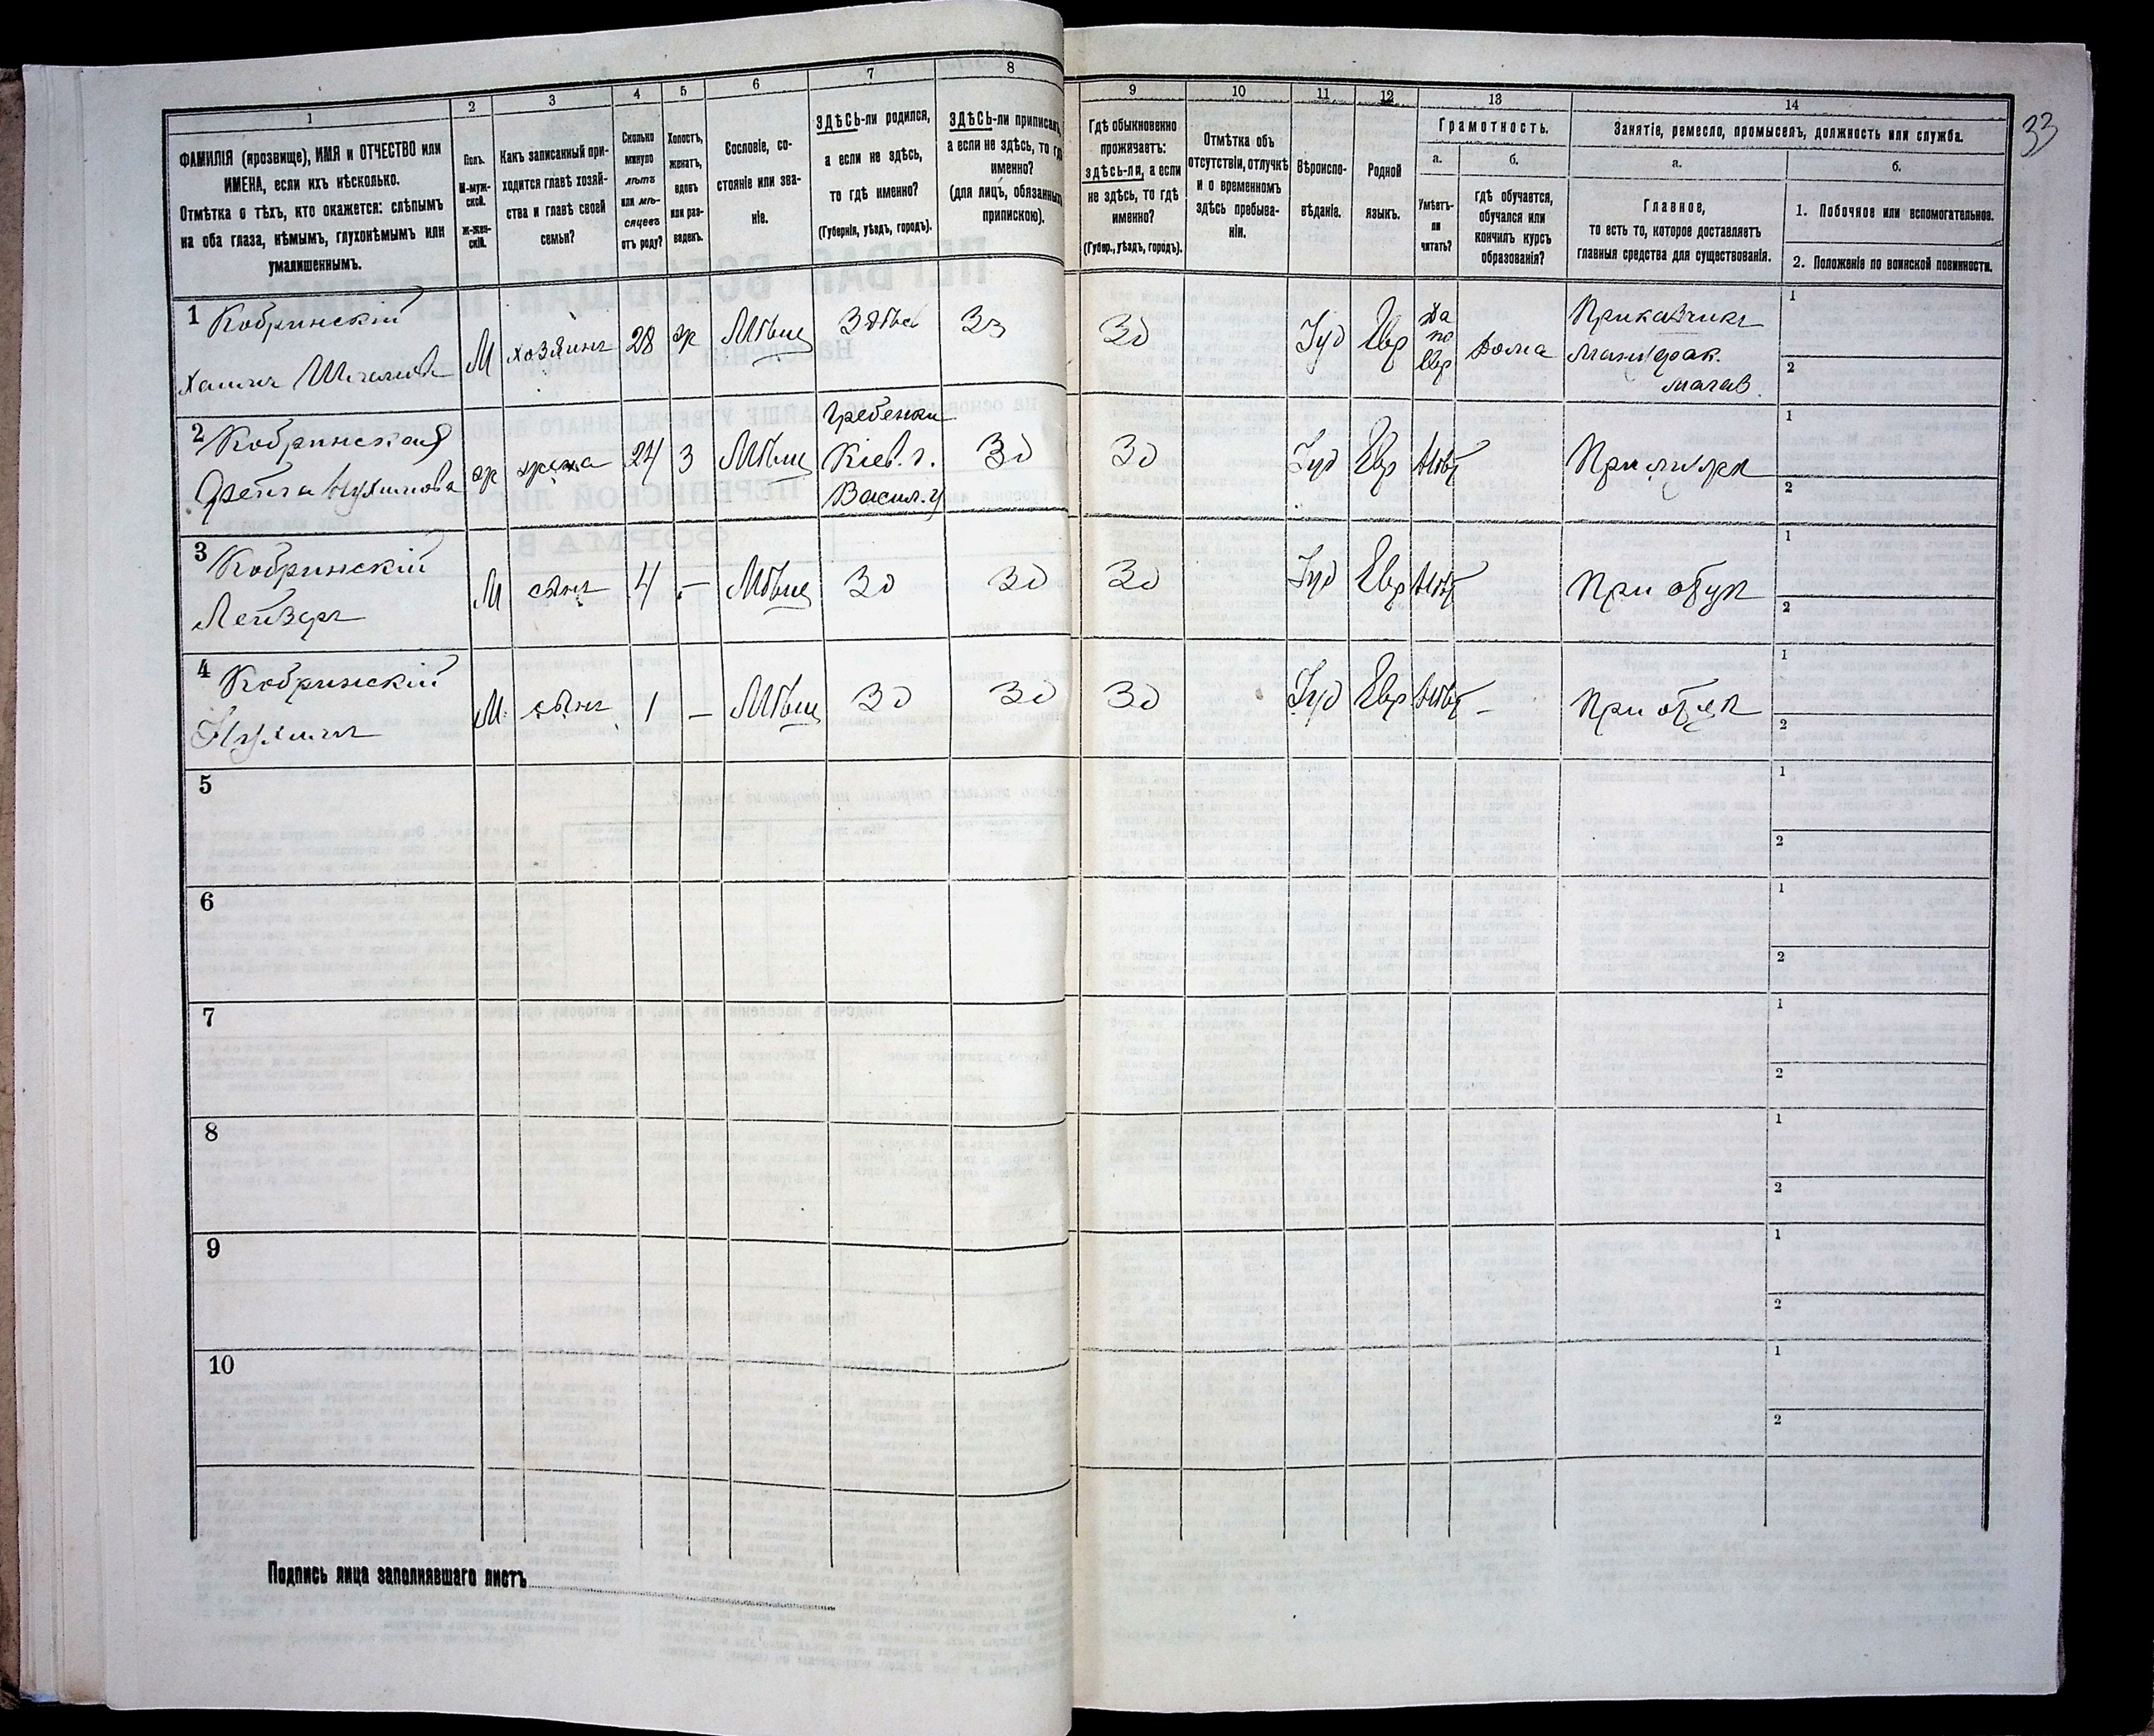 33
1
ФАМИЛІЯ (прозвище), ИМЯ и ОТЧЕСТВО или
ИМЕНА, если ихъ нѣсколько.
Отмѣтка о тѣхъ, кто окажется: слѣпымъ
на оба глаза, нѣмымъ, глухонѣмымъ или
умалишеннымъ.
2
Полъ.
М-муж-
ской.
Ж-жен-
скій.
3
Какъ записанный при-
ходится главѣ хозяй-
ства и главѣ своей
семьи?
4
Сколько
минуло
лѣтъ
или мѣ-
сяцевъ
отъ роду?
5
Холостъ,
женатъ,
вдовъ
или раз-
веденъ.
6
Сословіе, со-
стояніе или зва-
ніе.
7
ЗДѢСЬ-ли родился,
а если не здѣсь,
то гдѣ именно?
(Губернія, уѣздъ, городъ).
8
ЗДѢСЬ-ли приписанъ,
а если не здѣсь, то гдѣ
именно?
(для лицъ, обязанныхъ
припискою).
9
Гдѣ обыкновенно
проживаетъ:
здѣсь-ли, а если
не здѣсь, то гдѣ
именно?
(Губер., уѣздъ, городъ).
10
Отмѣтка объ
отсутствіи, отлучкѣ
и о временномъ
здѣсь пребыва-
ніи.
11
Вѣроиспо-
вѣданіе.
12
Родной
языкъ.
13
Грамотность.
а.
Умѣетъ-
ли
читать?
б.
гдѣ обучается,
обучался или
кончилъ курсъ
образованія?
14
Занятіе, ремесло, промыселъ, должность или служба.
а.
Главное,
то есть то, которое доставляетъ
главныя средства для существованія.
б.
1. Побочное или вспомогательное.
2. Положеніе по воинской повинности.
1 Кобринскій
Хаимъ
М
хозяинъ
28
ж
Мѣщ
Здѣсь
Зд
Іуд
Евр
да
по
Евр
дома
Приказчикъ
мануфак.
магаз.
1
2
2 Кобринская
Фейга Нухимова
ж
жена
24
З
Мѣщ
Гребенки
Кіев. г.
Васил. у
Зд
Зд
Іуд
Евр
Нѣт
При мужѣ
1
2
3 Кобринскій
Лейзеръ
М
сынъ
4
–
Мѣщ
Зд
Зд
Зд
Іуд
Евр
Нѣт
При отцѣ
1
2
4 Кобринскій
Нухимъ
М
сынъ
1
–
Мѣщ
Зд
Зд
Зд
Іуд
Евр
Нѣт
–
При отцѣ
1
2
5
1
2
6
1
2
7
1
2
8
1
2
9
1
2
10
1
2
Подпись лица заполнявшаго листъ